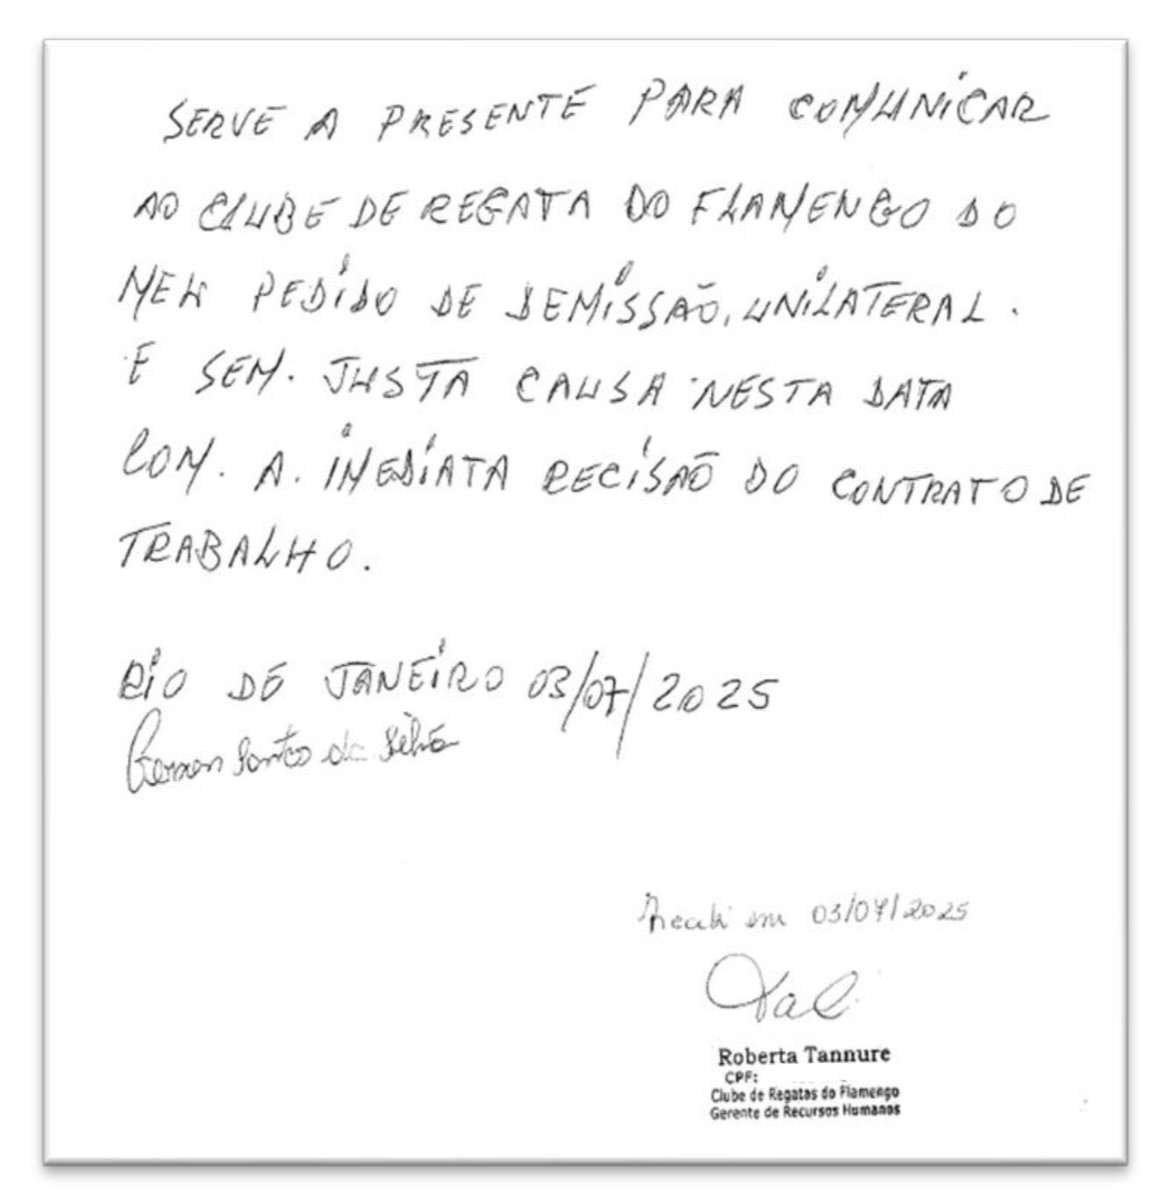 SERVE A PRESENTE PARA COMUNICAR
AO CLUBE DE REGATA DO FLAMENGO DO
MEU PEDIDO DE DEMISSÃO, UNILATERAL.
E SEM. JUSTA CAUSA NESTA DATA
COM. A. IMEDIATA RECISÃO DO CONTRATO DE
TRABALHO.
RIO DE JANEIRO 03/07/2025
Gerson Santos da Silva
Recebi em 03/07/2025
Roberta Tannure
CPF:
Clube de Regatas do Flamengo
Gerente de Recursos Humanos